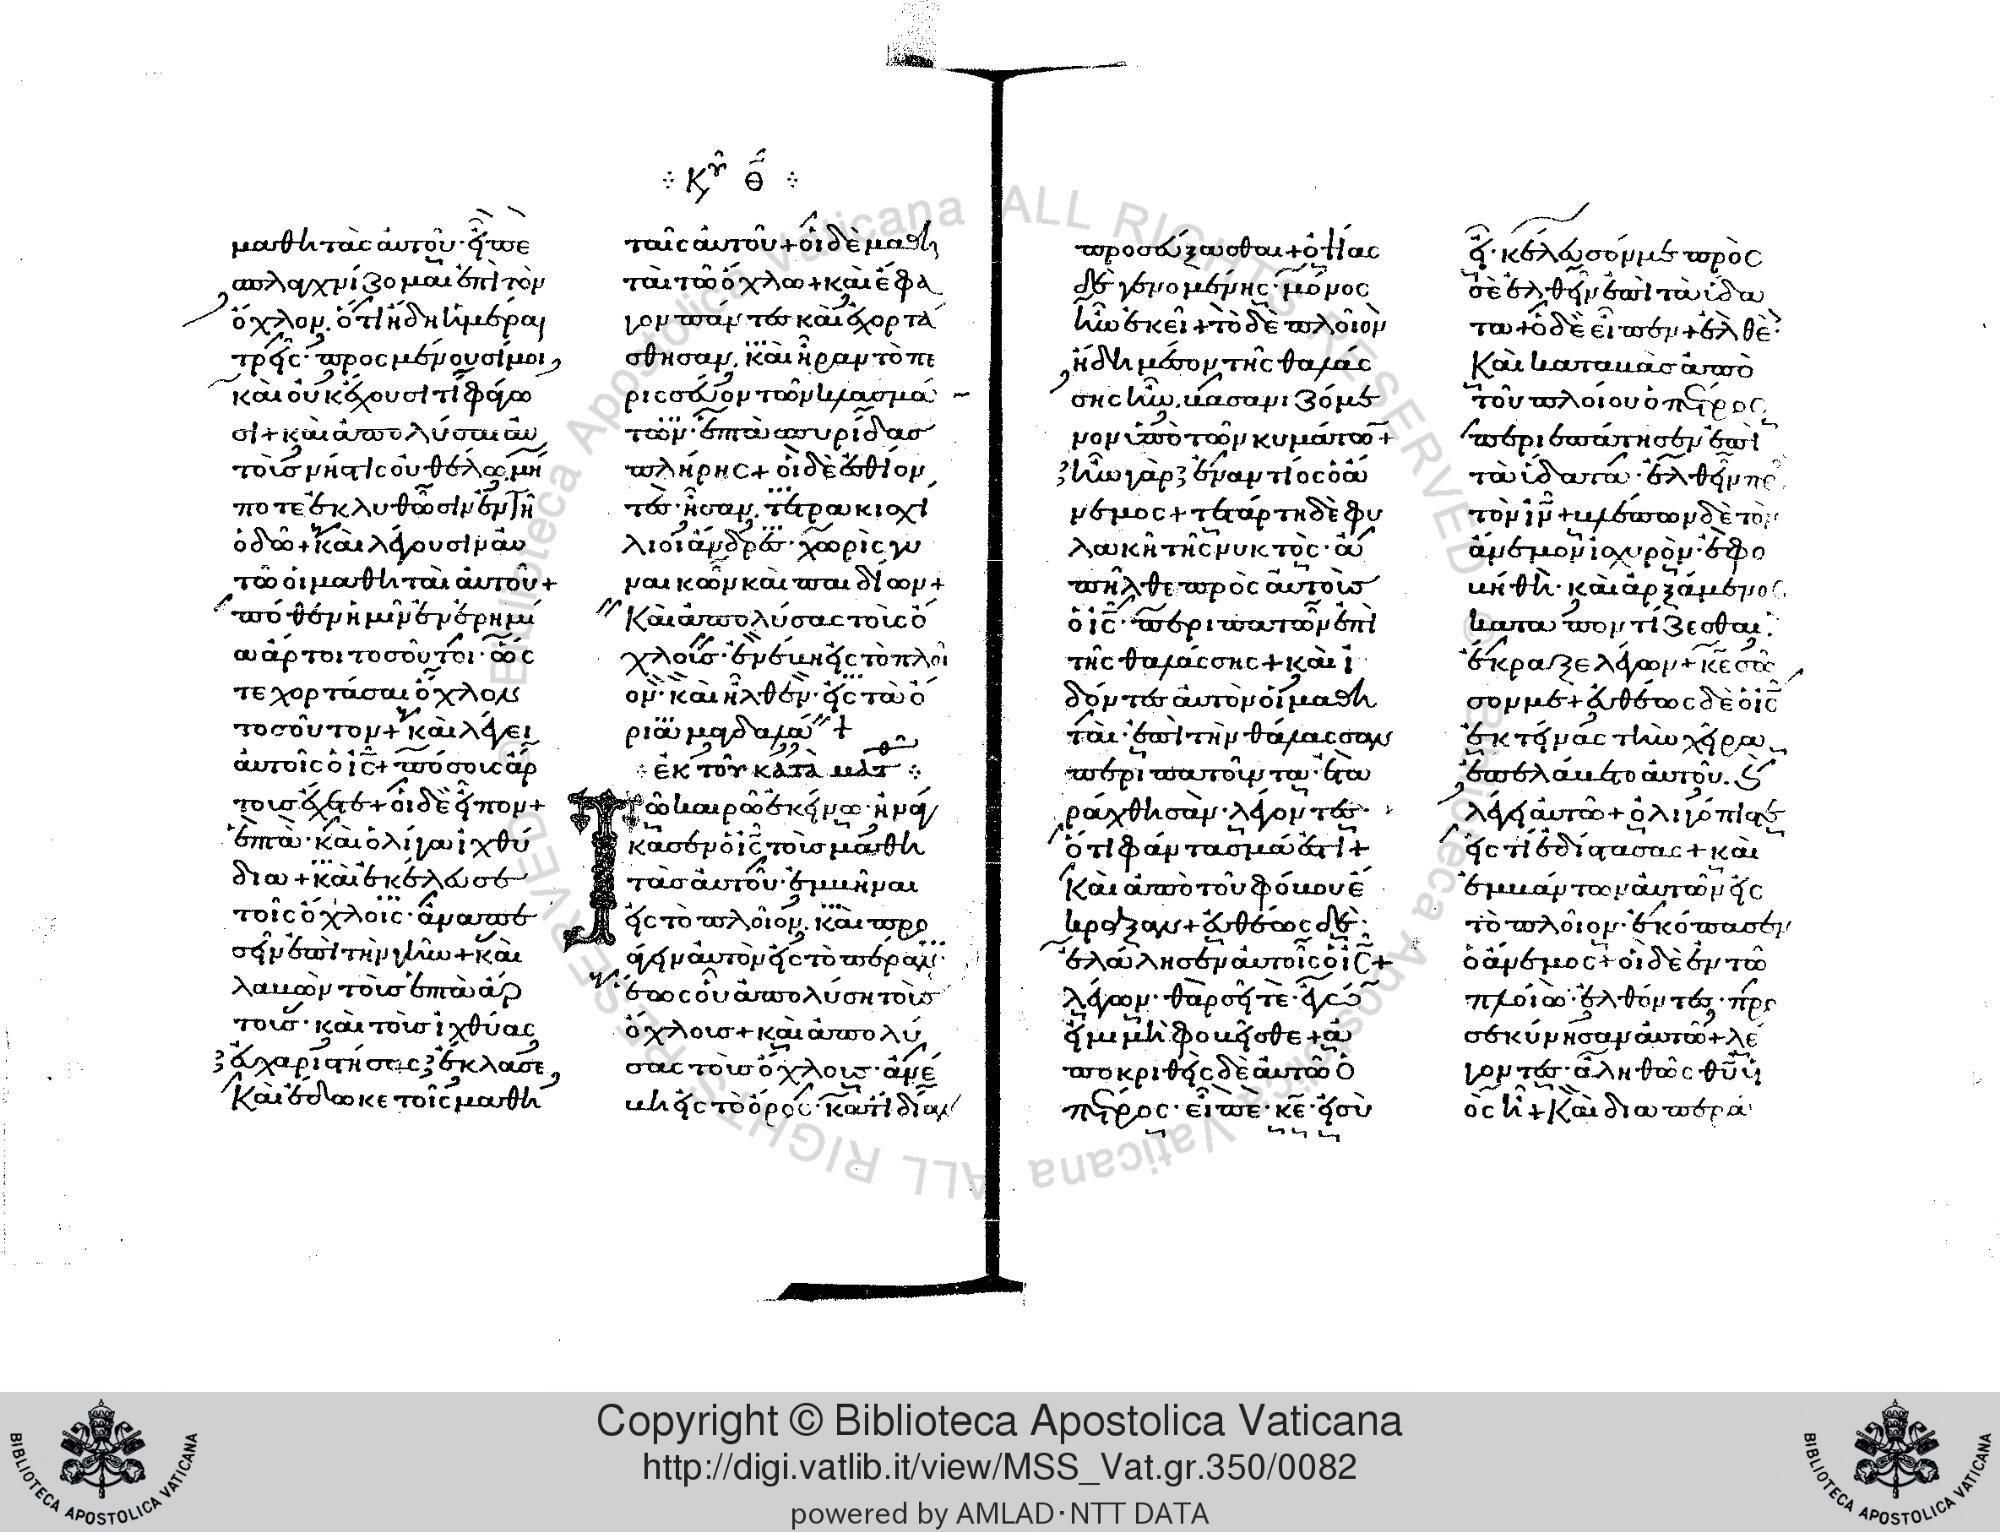 μαθητὰς αὐτοῦ· εἶπε
σπλαγχνίζομαι ἐπὶ τὸν
ὄχλον, ὅτι ἤδη ἡμέραι
τρεῖς· προσμένουσί μοι,
καὶ οὐκ ἔχουσι τί φάγω
σι+ καὶ ἀπολύσαι αὐ
τοὺς νήστις οὐ θέλω, μή
ποτε ἐκλυθῶσιν ἐν τῆ
ὁδῶ+ καὶ λέγουσιν αὐ
τῶ οἱ μαθηταὶ αὐτοῦ+
πόθεν ἡμῖν ἐν ἐρημί
α ἄρτοι τοσοῦτοι· ὥς
τε χορτάσαι ὄχλον
τοσοῦτον+ καὶ λέγει
αὐτοῖς ὁ ις+ πόσους ἄρ
τους ἔχετε+ οἱ δὲ εἶπον+
ἑπτὰ· καὶ ὀλίγα ἰχθύ
δια+ καὶ ἐκέλευσε
τοῖς ὄχλοις· ἀναπεσ
εῖν ἐπὶ τὴν γῆν+ καὶ
λαβὼν τοὺς ἑπτὰ ἄρ
τους· καὶ τοὺς ἰχθύας
εὐχαριστήσας ἔκλασε,
Καὶ ἔδωκε τοῖς μαθη
Κυ θ
ταῖς αὐτοῦ+ οἱ δὲ μαθη
ταὶ τῶ ὄχλω+ καὶ ἔφα
γον πάντες καὶ ἐχορτά
σθησαν, καὶ ἦραν τὸ πε
ρισσεῦον τῶν κλασμά
των· ἑπτὰ σπυρίδας
πλήρης+ οἱ δὲ ἐσθίον
τες· ἦσαν, τετρακισχί
λιοι ἄνδρες· χωρὶς γυ
ναικῶν καὶ παιδίων+
Καὶ ἀπολύσας τοὺς ὄ
χλους· ἐνέβη εἰς τὸ πλοῖ
ον· καὶ ἦλθεν· εἰς τὰ ὅ
ρια μαγδαλά+
ἐκ τοῦ κατὰ ματθ
Τῶ καιρῶ ἐκείνω· ἠνάγ
κασεν ὁ ις τοὺς μαθη
τὰς αὐτοῦ· ἐμβῆναι
εἰς τὸ πλοῖον, καὶ προ
άγειν αὐτὸν εἰς τὸ πέραν·
ἕως οὗ ἀπολύση τοὺς
ὄχλους+ καὶ ἀπολύ
σας τοὺς ὄχλους· ἀνέ
βη εἰς τὸ ὄρος· κατιδίαν
προσεύξασθαι+ ὀψίας
δὲ γενομένης· μόνος
ἦν ἐκεῖ+ τὸ δὲ πλοῖον
ἤδη μέσον τῆς θαλάσ
σης ἦν, βασανιζόμε
νον ὑπὸ τῶν κυμάτω+
ἦν γὰρ ἐναντίος ὁ ἄ
νεμος+ τετάρτη δὲ φυ
λακῆ τῆς νυκτὸς· ἀ
πῆλθε πρὸς αὐτοὺς
ὁ ις· περιπατῶν ἐπὶ
τῆς θαλάσσης+ καὶ ἰ
δόντες αὐτὸν οἱ μαθη
ταὶ· ἐπὶ τὴν θάλασσαν
περιπατοῦντα· ἐτα
ράχθησαν· λέγοντες·
ὅτι φάντασμά ἐστι+
Καὶ ἀπὸ τοῦ φόβου ἔ
κραξαν+ εὐθέως δὲ·
ἐλάλησεν αὐτοῖς ὁ ις+
λέγων· θαρσεῖτε· ἐγώ
εἰμι μὴ φοβεῖσθε+ ἀ
ποκριθεὶς δὲ αὐτῶ ὁ
πέτρος· εἶπε· κε· εἰ σὺ
εἶ· κέλευσόν με πρὸς
σὲ ἐλθεῖν ἐπὶ τὰ ὕδα
τα+ ὁ δὲ εἶπεν+ ἐλθέ·
Καὶ καταβὰς ἀπὸ
τοῦ πλοίου ὁ πέτρος,
περιεπάτησεν ἐπὶ
τὰ ὕδατα· ἐλθεῖν πρὸς
τὸν ιν+ βλέπων δὲ τὸν
ἄνεμον ἰσχυρὸν· ἐφο
βήθη· καὶ ἀρξάμενος
καταποντίζεσθαι·
ἔκραξε λέγων+ κε σῶ
σόν με+ εὐθέως δὲ ὁ ις
ἐκτείνας τὴν χεῖρα
ἐπελάβετο αὐτοῦ· καὶ
λέγει αὐτῶ+ ὀλιγόπιστε
εἰς τί ἐδίστασας+ καὶ
ἐμβάντων αὐτῶν εἰς
τὸ πλοῖον· ἐκόπασεν
ὁ ἄνεμος+ οἱ δὲ ἐν τῶ
πλοίω· ἐλθόντες· προ
σεκύνησαν αὐτῶ+ λέ
γοντες· ἀληθῶς θυ υἱ
ός εἶ+ Καὶ διαπερά
Copyright © Biblioteca Apostolica Vaticana
http://digi.vatlib.it/view/MSS_Vat.gr.350/0082
powered by AMLAD·NTT DATA
BIBLIOTECA APOSTOLICA VATICANA
BIBLIOTECA APOSTOLICA VATICANA
© Biblioteca Apostolica Vaticana ALL RIGHTS RESERVED
© Biblioteca Apostolica Vaticana ALL RIGHTS RESERVED